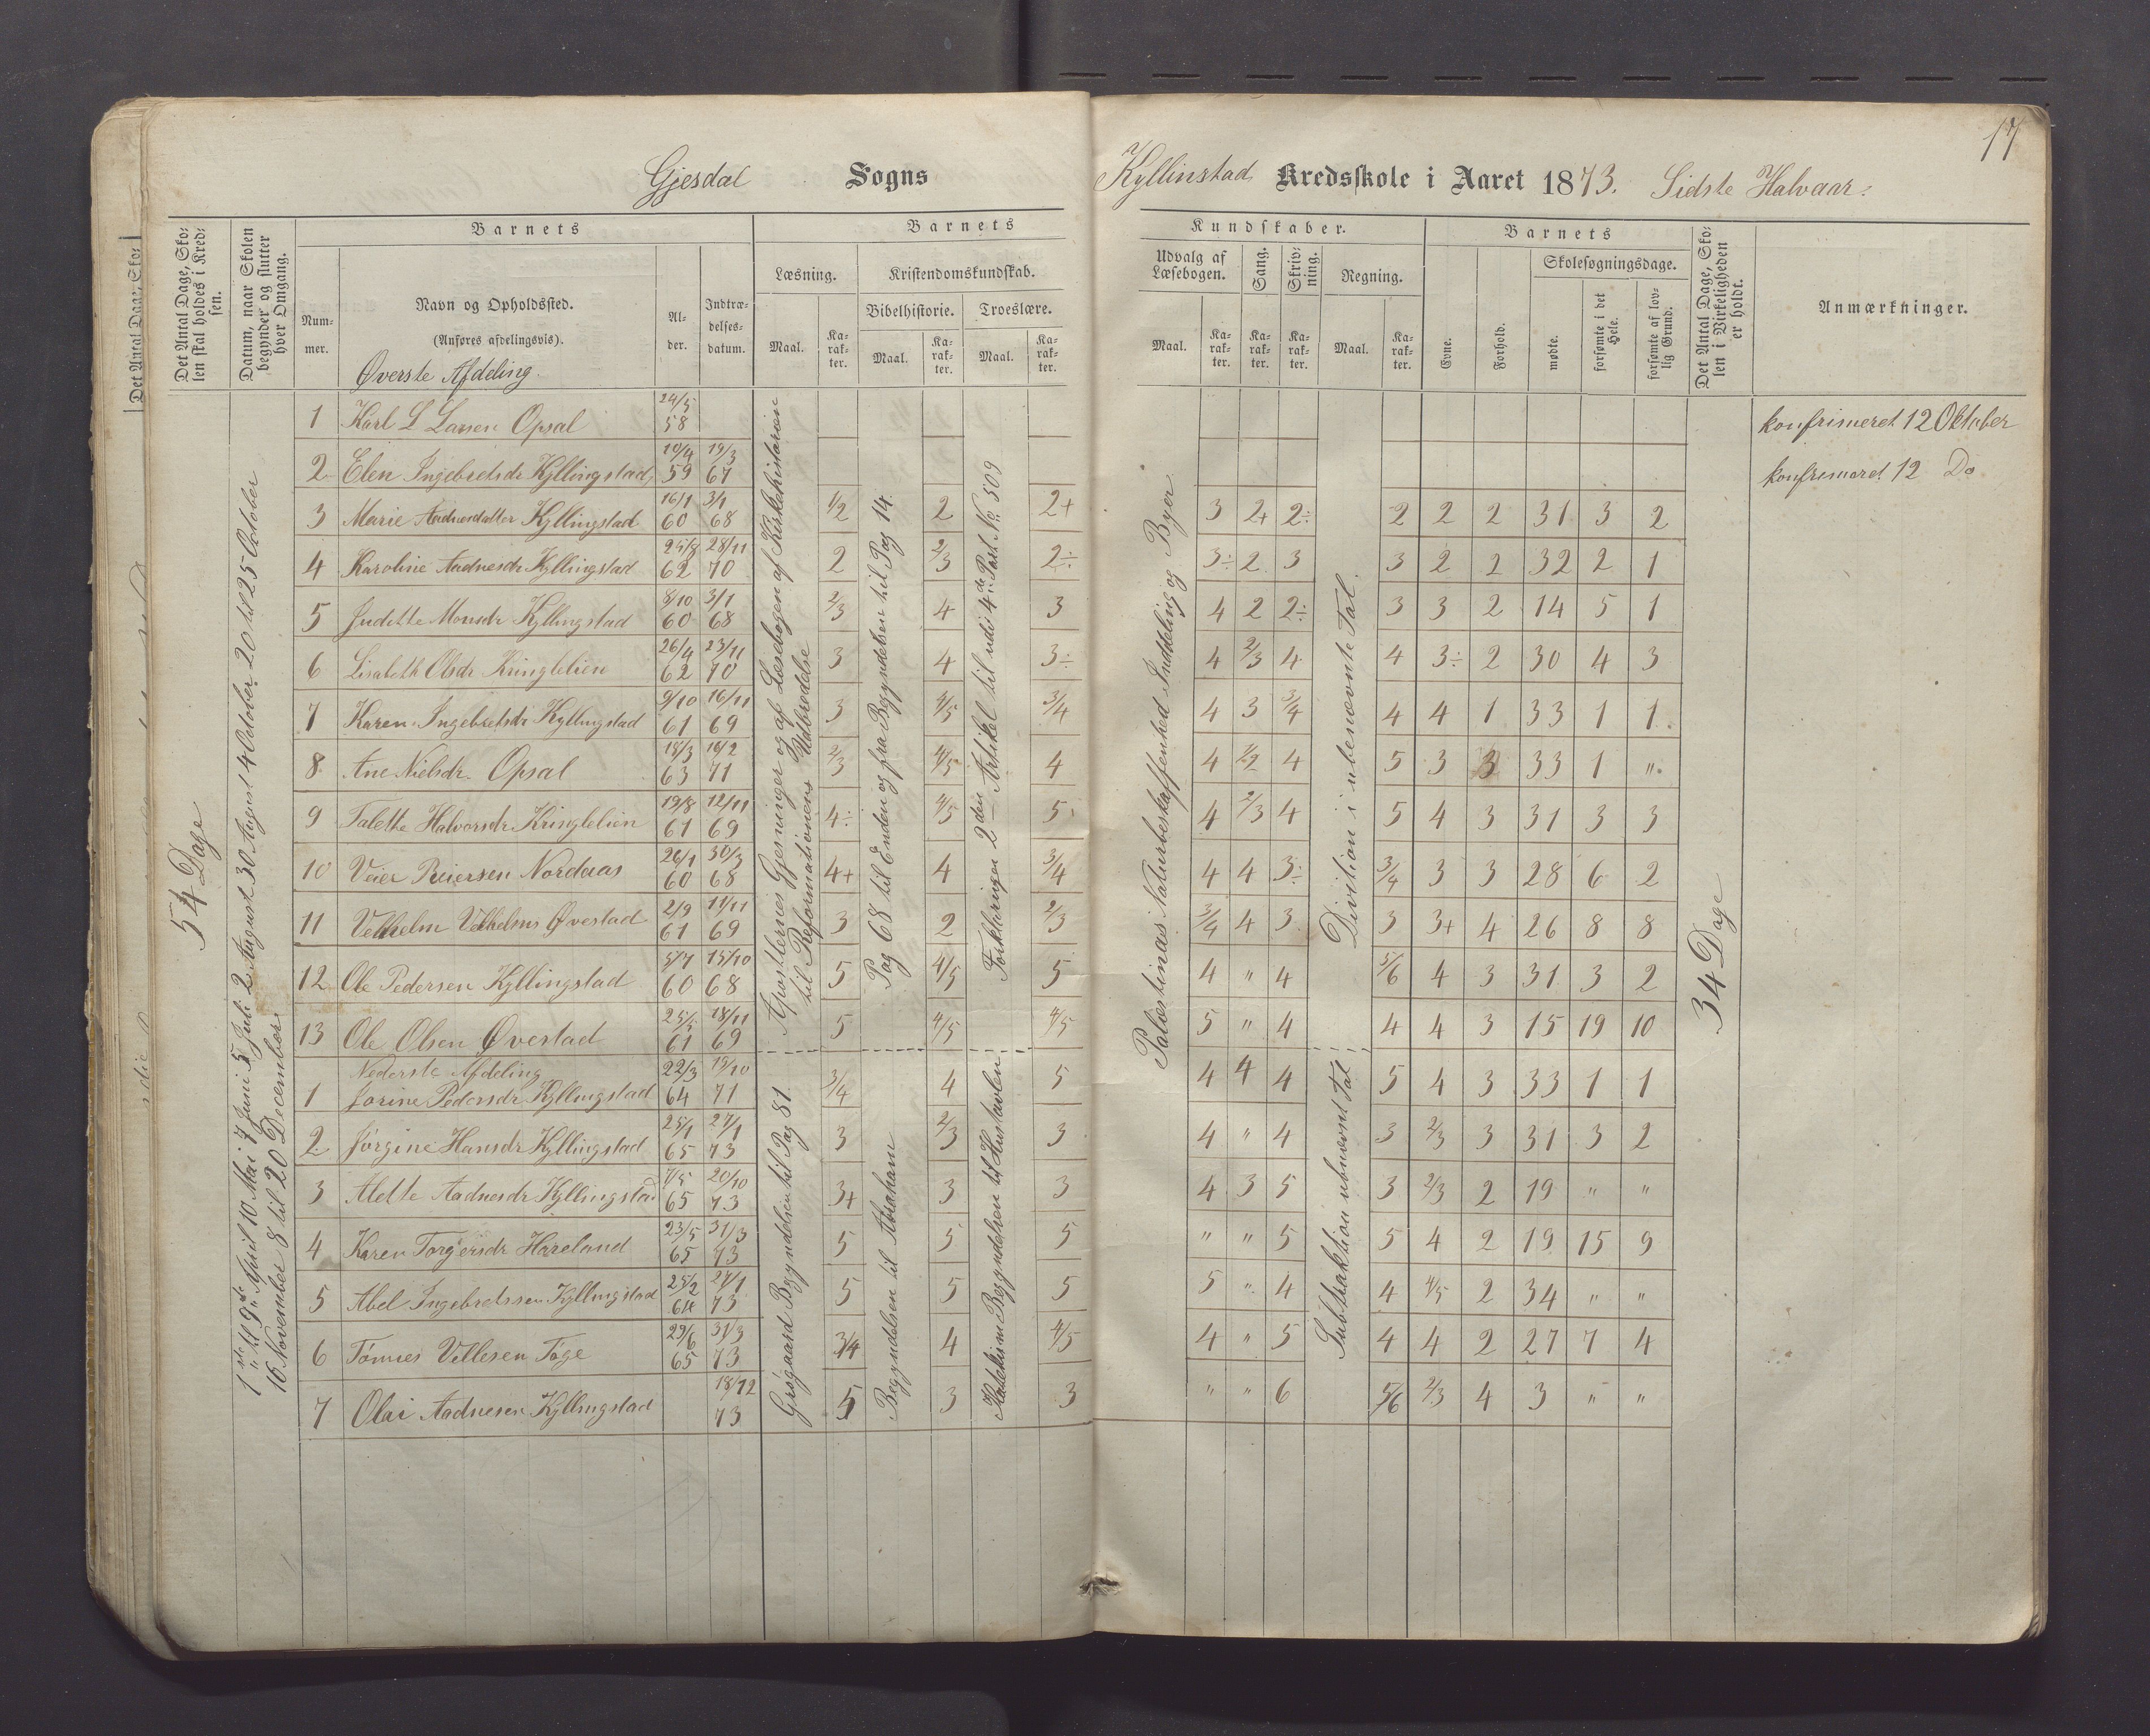 17
Gjesdal Sogns Kyllinstad Kredsskole i Aaret 1873. Sidste Halvaar.
Det Antal Dage, Skolen skal holdes i Kredsen.
Datum, naar Skolen begynder og slutter hver Omgang.
Barnets
Nummer.
Navn og Opholdssted.
(Anføres afdelingsvis).
Alder.
Indtrædelsesdatum.
Barnets Kundskaber.
Læsning.
Maal.
Karakter.
Kristendomskundskab.
Bibelhistorie.
Maal.
Karakter.
Troeslære.
Maal.
Karakter.
Udvalg af Læsebogen.
Maal.
Karakter.
Sang.
Karakter.
Skrivning.
Karakter.
Regning.
Maal.
Karakter.
Barnets
Evne.
Forhold.
Skolesøgningsdage.
mødte.
forsømte i det Hele.
forsømte af lovlig Grund.
Det Antal Dage, Skolen i Virkeligheden er holdt.
Anmærkninger.
54 Dage
10 Mai 7 Juni 5 Juli 2 August 30 August 4 October 20 til 25 October
16 November 8 til 20 December
Apostlernes Gjerninger og af Læsebogen af Kirkehistorien
til Reformationens Udbredelse
Pag 68 til Enden og fra Begyndelsen til Pag 14.
Forklaringen 2den Artikel til udi 4de Part No. 509
Palæstinas Naturbeskaffenhed Inddeling og Byer
Division i ubenævnte Tal.
34 Dage
Øverste Afdeling.
1 Karl L Larsen Opsal 24/5 58 konfrimeret 12 Oktober
2 Elen Ingebretsdr Kyllingstad 10/4 59 19/3 67 konfrimeret 12 Do
3 Marie Aadnesdatter Kyllingstad 16/1 60 3/1 68 1/2 2 2+ 3 2+ 2÷ 2 2 2 31 3 2
4 Karoline Aadnesdr Kyllingstad 62 28/11 70 2 2/3 2÷ 3÷ 2 3 3 2 2 32 2 1
5 Juditte Monsdr Kyllingstad 8/10 60 3/1 68 2/3 4 3 4 2 2÷ 3 3 2 14 5 1
6 Lisabeth Olsdr Kringlelien 26/4 62 23/11 70 3 4 3÷ 4 2/3 4 4 3÷ 2 30 4 3
7 Karen Ingebretsdr Kyllingstad 9/10 61 16/11 69 3 4/5 3/4 4 3 3/4 4 4 1 33 1 1
8 Ane Nielsdr. Opsal 18/3 63 16/2 71 2/3 4/5 4 4 4 5 3 3 33 1 "
9 Talette Halvorsdr Kringlelien 19/8 61 12/11 69 4÷ 4/5 5 4 2/3 4 5 4 3 31 3 3
10 Veier Reiersen Nordaas 26/1 60 30/3 68 4+ 4 3/4 4 4 3÷ 3/4 3 3 28 6 2
11 Velhelm Velhelms Øvestad 2/9 61 11/11 69 3 2 2/3 3/4 4 3 3 3+ 4 26 8 8
12 Ole Pedersen Kyllingstad 5/7 60 15/10 68 5 4/5 5 4 " 4 5/6 4 3 31 3 2
13 Ole Olsen Øvestad 61 18/11 69 5 4/5 4/5 5 " 4 4 4 3 15 19 10
Nederste Afdeling
Grøgaard Begyndelsen til Pag 81
Begyndelsen til Abraham
Katekisme Begyndelsen til Hustavlen
Subtraktion ubnævnt Tal
1 Jorine Pedersdr Kyllingstad 22/3 64 19/10 71 3/4 4 5 4 4 4 5 4 3 33 1 1
2 Jørgine Hansdr Kyllingstad 25/1 65 27/1 73 3 2/3 3 4 " 4 3 2/3 3 31 3 2
3 Alette Aadnesdr Kyllingstad 7/5 65 20/10 73 3+ 3 3 4 3 5 3 2/3 2 19 " "
4 Karen Torgersdr Haveland 23/5 65 31/3 73 5 5 5 " " 5 5 4 2 19 15 9
5 Abel Ingebretssen Kyllingstad 25/2 64 27/1 73 5 5 5 5 " 4 4 4/5 2 34 " "
6 Tønnes Villesen Tøge 29/6 65 31/3 73 3/4 4 4/5 4 " 5 4 4 2 27 7 4
7 Olai Aadnesen Kyllingstad 18/12 73 5 3 3 " " 6 5/6 2/3 4 3 " "